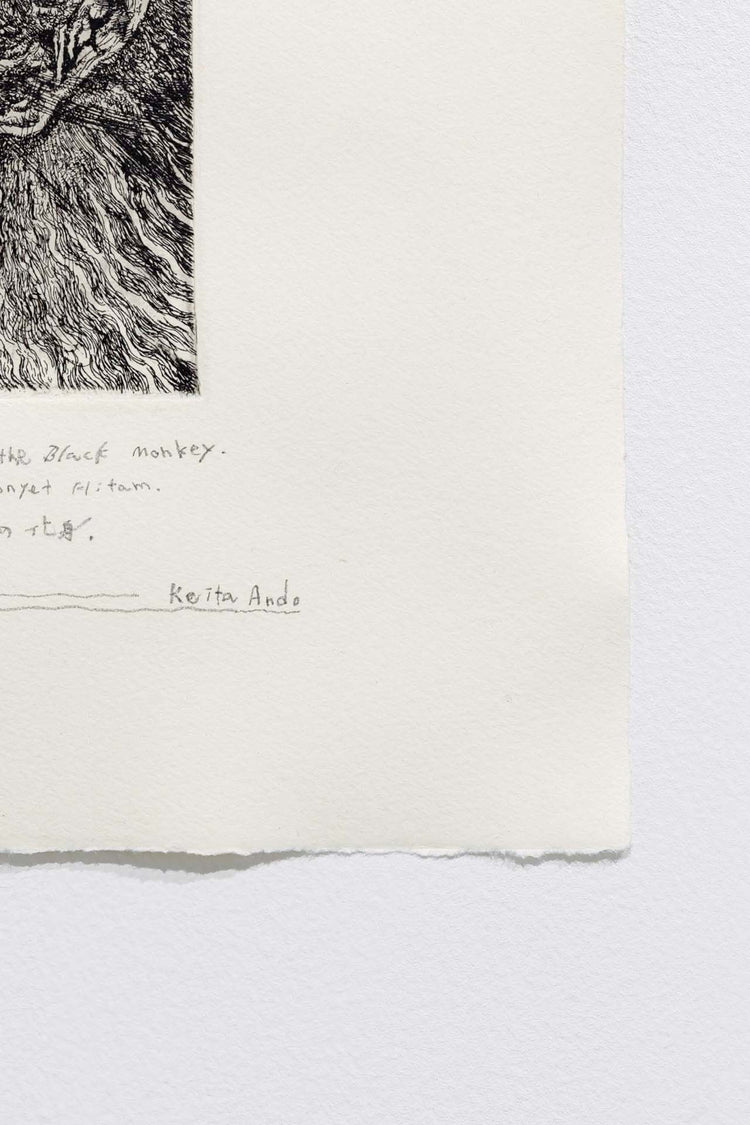 the Black monkey.
onyet Hitam.
の化身.
Keita Ando